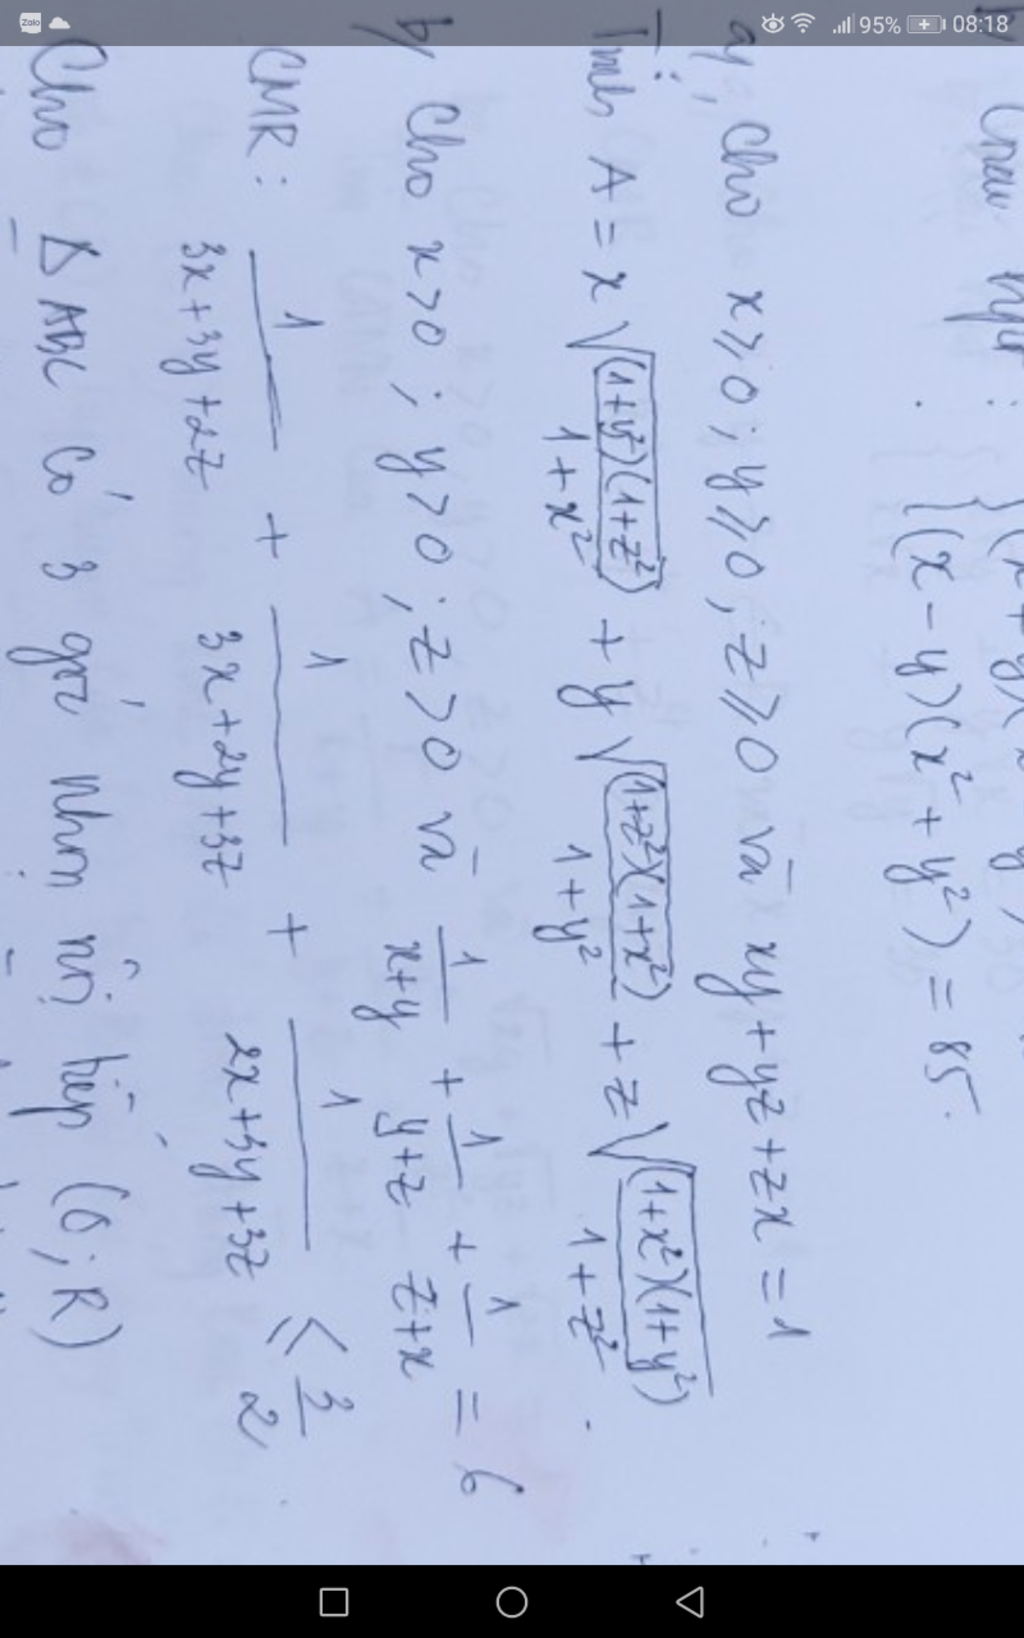 Zalo 95% 08:18
(x - y)(x² + y²) = 85.
a, Cho x ≥ 0 ; y ≥ 0 ; z ≥ 0 và xy + yz + zx = 1
Tính A = x √((1+y²)(1+z²) / (1+x²)) + y √((1+z²)(1+x²) / (1+y²)) + z √((1+x²)(1+y²) / (1+z²)) .
b, Cho x > 0 ; y > 0 ; z > 0 và 1/(x+y) + 1/(y+z) + 1/(z+x) = 6
CMR : 1/(3x+3y+2z) + 1/(3x+2y+3z) + 1/(2x+3y+3z) ≤ 3/2
Cho Δ ABC có 3 góc nhọn nội tiếp (O; R)